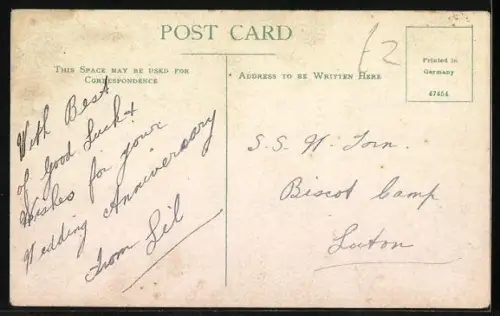 POST CARD
£2
THIS SPACE MAY BE USED FOR
CORRESPONDENCE
ADDRESS TO BE WRITTEN HERE
Printed in
Germany
47464
With Best
of Good Luck +
Wishes for your
Wedding Anniversary
From Lil
S. S. W. Torn.
Biscot Camp
Luton